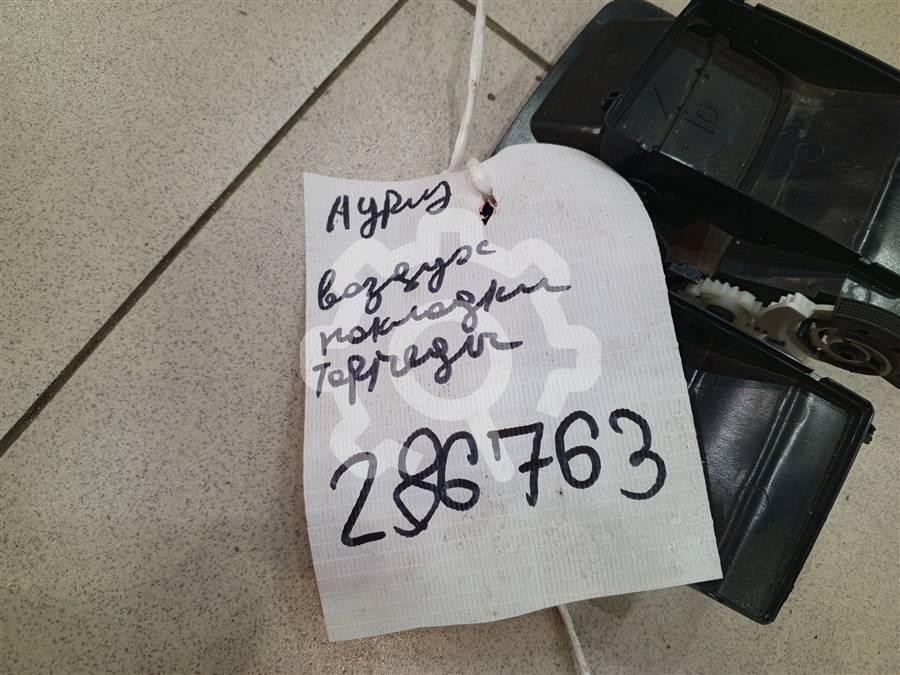 Аурис
воздух
накладки
торпеды
286763